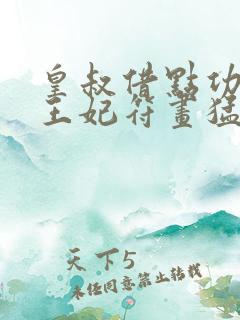 皇叔借點功
王妃符畫猛
天下5
未經同意禁止轉載